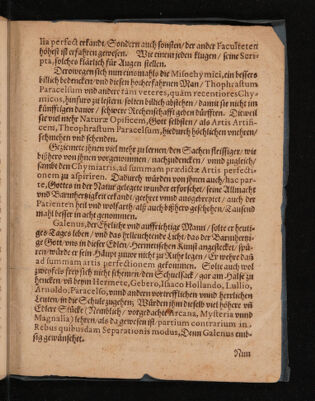 lia perfect erkandt. Sondern auch sonsten / der ander Faculteten
höhest ist erfahren gewesen. Wie einem jeden klugen / seine Scri-
pta, solches klärlich für Augen stellen.
Derowegen sich nun einsmahls die Misochymici, ein bessers
billich bedencken / und diesen hocherfahrnen Man / Thophrastum
Paracelsum und andere tàm veteres, quàm recentiores Chy-
micos, hinfuro zu lestern / solten billich abstehen / damit sie nicht im
künfftigen davor / schwere Rechenschafft geben dürfften. Dieweil
sie viel mehr Naturæ Opificem, Gott selbsten / als Artis, Artifi-
cem, Theophrastum Paracelsum, hiedurch höchlichen vnehren /
schmehen und schenden.
Geziemete ihnen viel mehr zu lernen / den Sachen fleissiger / wie
bißhero von ihnen vorgenommen / nachzudencken / vnnd zugleich /
sambt den Chymiatris, ad summam prædictæ Artis perfecti-
onem zu aspiriren. Dadurch würden von ihnen auch / hac par-
te, Gottes in der Natur gelegete wunder erforschet / seine Allmacht
und Barmhertzigkeit erkandt / geehret vnnd außgebreitet / auch der
Patienten heil und wolfarth / als auch bißhero geschehen / Tausend
mahl besser in acht genommen.
Galenus, der Ehrliche und auffrichtige Mann / solte er heuti-
ges Tages leben / vnd das helleuchtende Licht / das der Barmhertzi-
ge Gott / vns in dieser Edlen / Hermetischen Kunst angestecket / spü-
ren / würde er sein Häupt zuvor nicht zu Ruhe legen / Er wehre dañ
ad summam artis perfectionem gekommen. Solte auch wol
zweyfels frey sich nicht schemen / den Schuelsack / gar am Halse zu
hencken / vñ beym Hermete, Gebero, Isaaco Hollando, Lullio,
Arnoldo, Paracelso, vnnd andern vortrefflichen vnnd herrlichen
Leuten / in die Schule zugehen; Würden ihm dieselb viel höher vñ
Edlere Stücke / (Nemblich / vorgedachte Arcana, Mysteria vnnd
Magnalia) lehren / als da gewesen ist / partium contrarium in
Rebus quibusdam Separationis modus, Denn Galenus emb-
sig gewünschet.
Nun